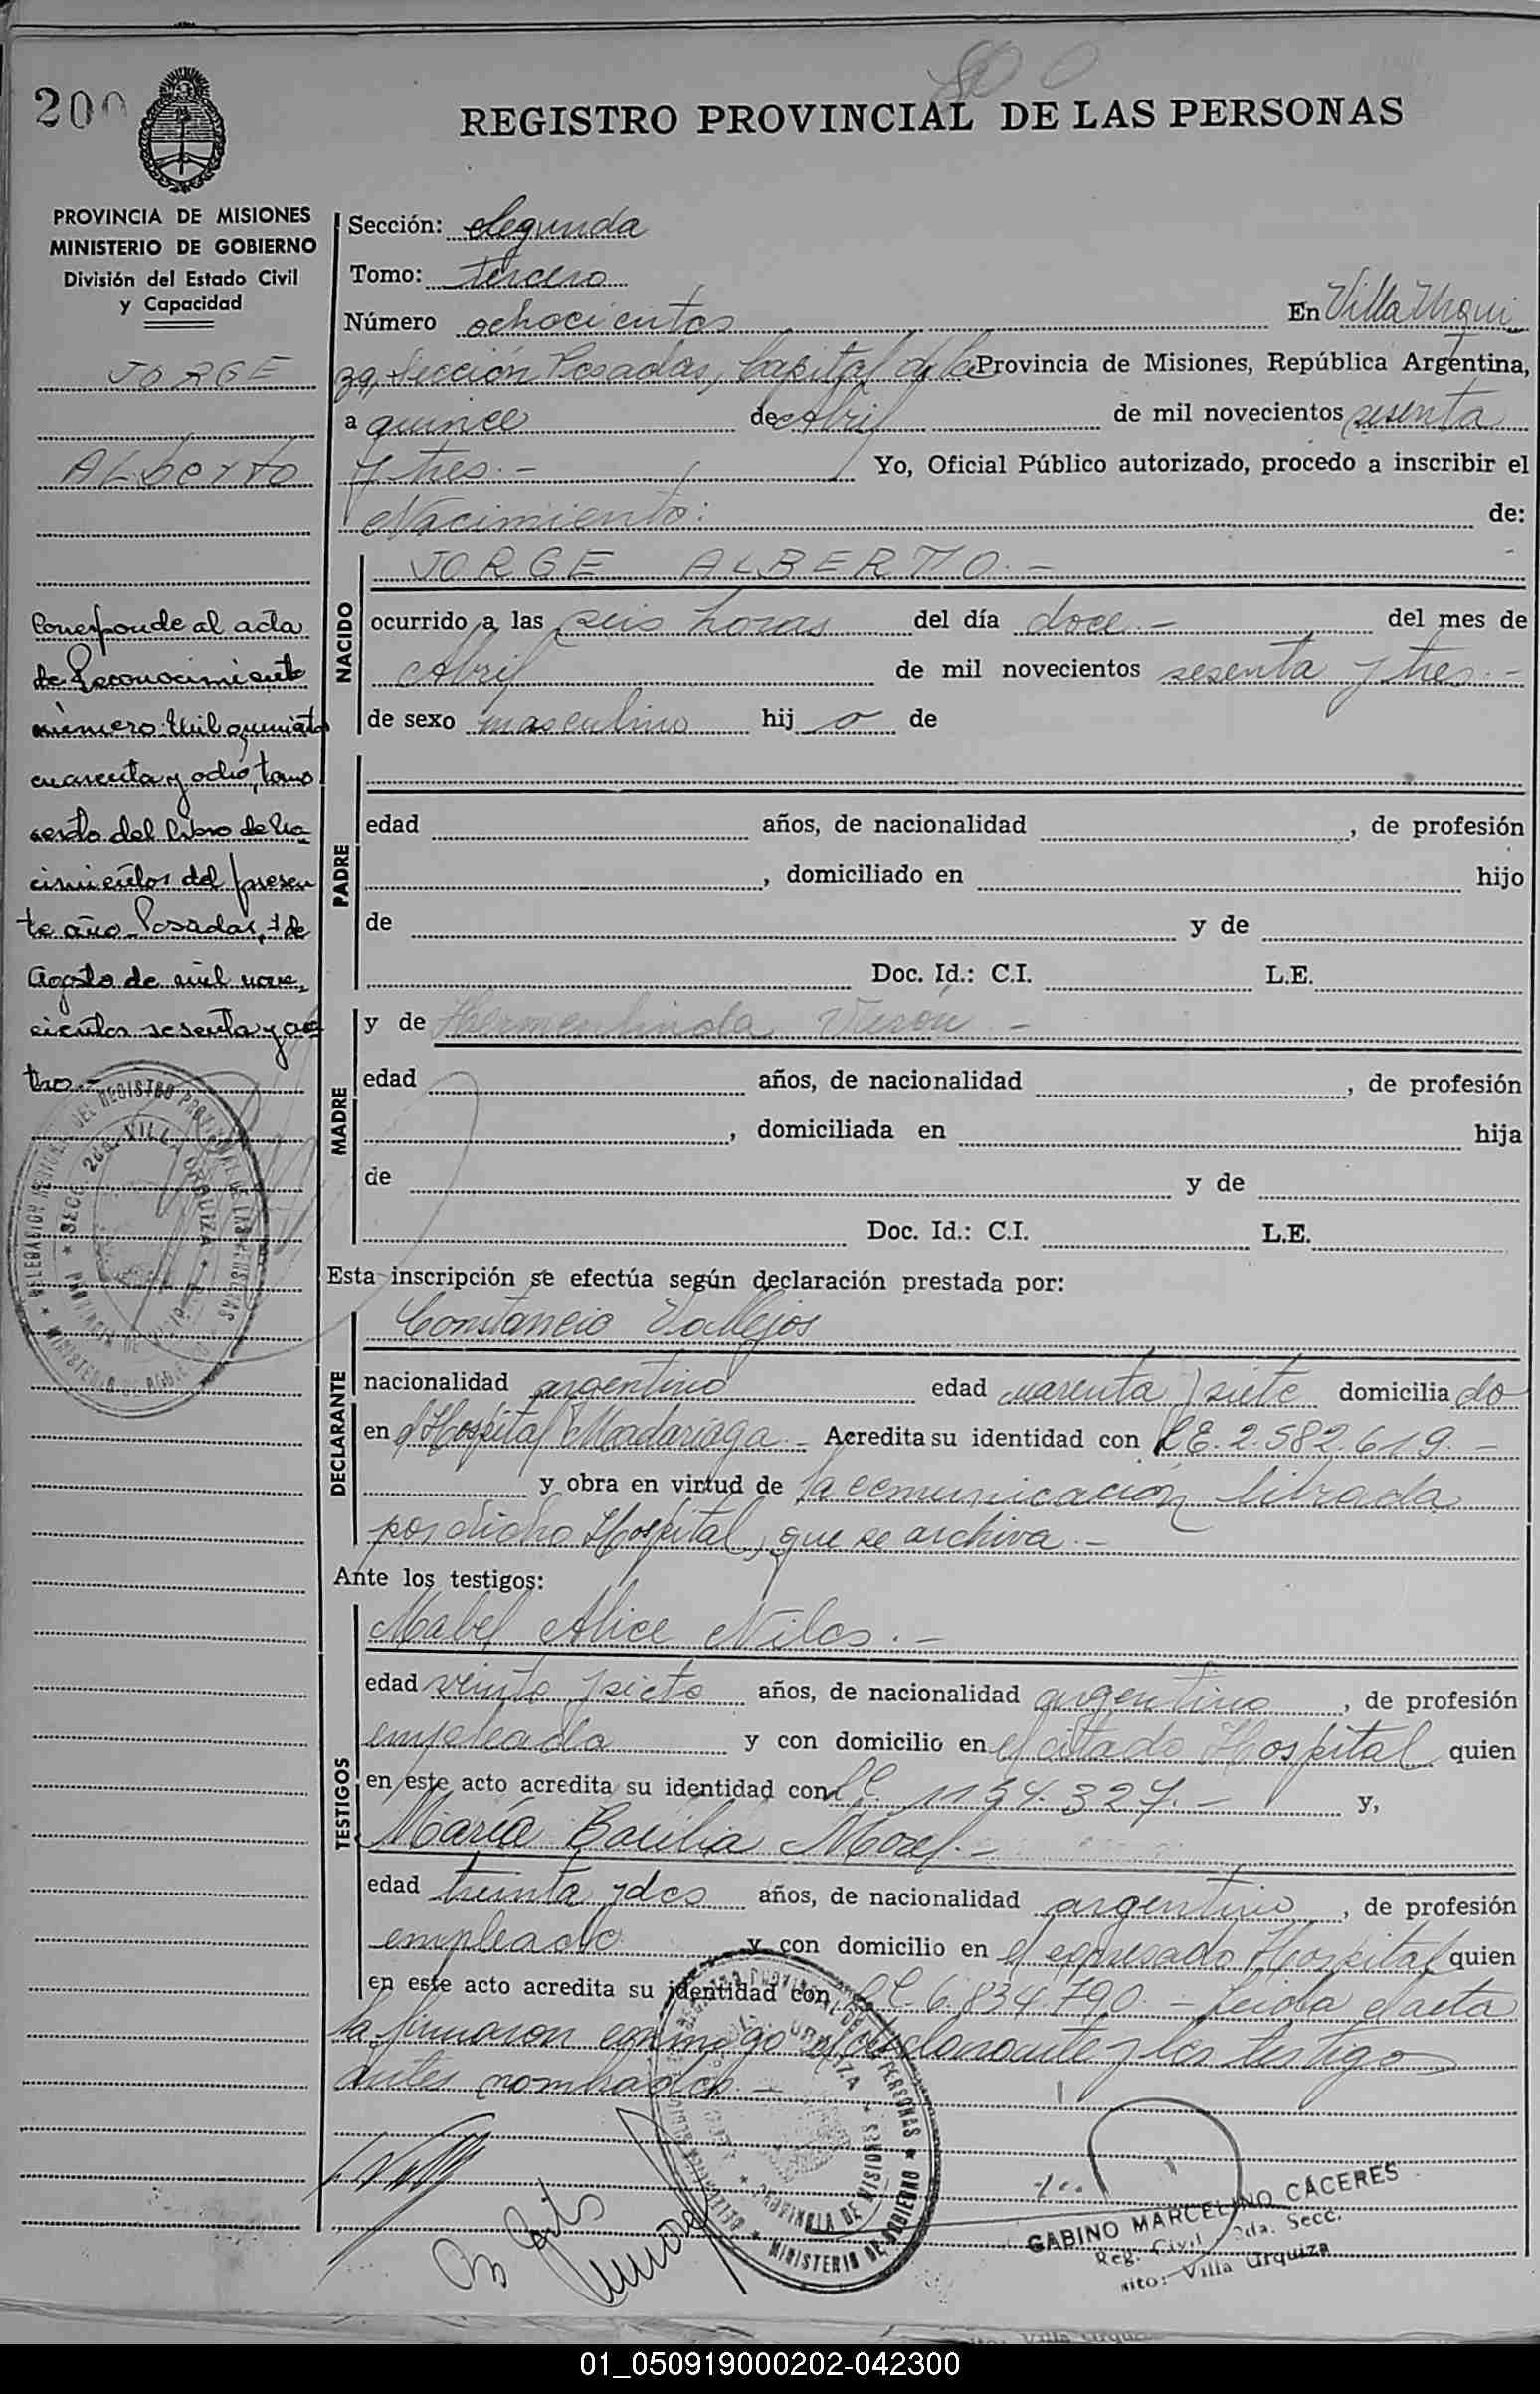 200
REGISTRO PROVINCIAL DE LAS PERSONAS
PROVINCIA DE MISIONES
MINISTERIO DE GOBIERNO
División del Estado Civil
y Capacidad
JORGE
ALberto
Corresponde al acta
de Reconocimiento
número Mil
cuarenta y ocho, tomo
sexto del libro de Na-
cimientos del presen
te año. Posadas, de
Agosto de mil nove,
cientos sesenta y cua
tro.-
Sección: Segunda
Tomo: Tercero
Número ochocientos En Villa Urqui
za, Sección Posadas, Capital de la Provincia de Misiones, República Argentina,
a quince de Abril de mil novecientos sesenta
y tres.- Yo, Oficial Público autorizado, procedo a inscribir el
Nacimiento: de:
NACIDO
JORGE ALBERTO.-
ocurrido a las seis horas del día doce.- del mes de
Abril de mil novecientos sesenta y tres.-
de sexo masculino hij o de
PADRE
edad años, de nacionalidad , de profesión
, domiciliado en hijo
de y de
Doc. Id.: C.I. L.E.
MADRE
y de Hermenlinda .-
edad años, de nacionalidad , de profesión
, domiciliada en hija
de y de
Doc. Id.: C.I. L.E.
Esta inscripción se efectúa según declaración prestada por:
DECLARANTE
Constancio Vallejos
nacionalidad argentino edad cuarenta y siete domicilia do
en el Hospital Madariaga.- Acredita su identidad con L.E. 2.582.619.-
y obra en virtud de la comunicación librada
por dicho Hospital, que se archiva.-
Ante los testigos:
TESTIGOS
Mabel Alice .-
edad veinte y siete años, de nacionalidad argentina , de profesión
empleada y con domicilio en el citado Hospital quien
en este acto acredita su identidad con L.C. 1154.327.- y,
María Morel.-
edad treinta y dos años, de nacionalidad argentina , de profesión
empleada y con domicilio en el expresado Hospital quien
en este acto acredita su identidad con L.C. 6.834.790.- Leida el acta
la firmaron conmigo el declarante y los testigos
antes nombrados.-
GABINO MARCELINO CÁCERES
Reg. Civil 2da. Secc.
Villa Urquiza
01_050919000202-042300